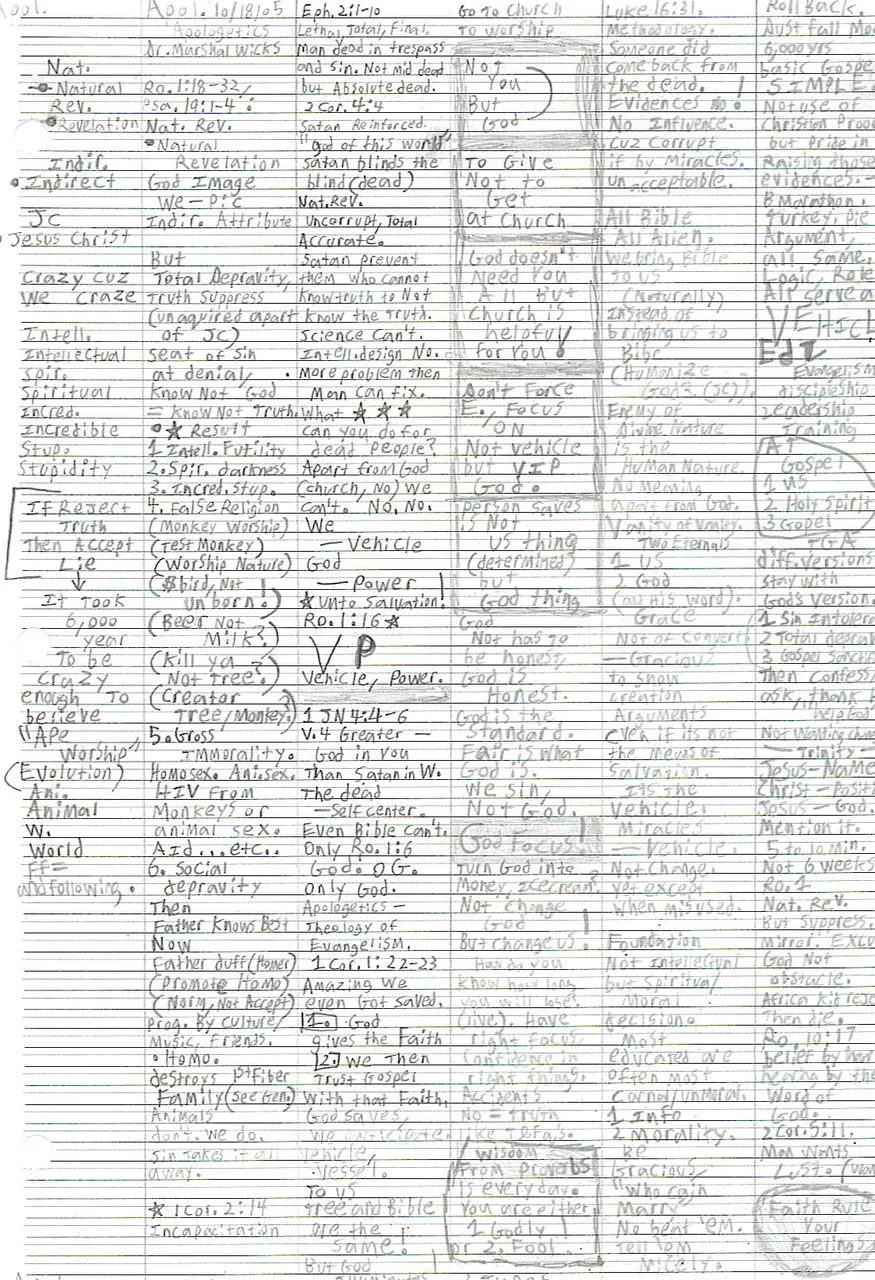 Apol.
Nat.
Natural
Rev.
Revelation
Indir.
Indirect
JC
Jesus Christ
Crazy cuz
We craze
Intell.
Intellectual
Spir.
Spiritual
Incred.
Incredible
Stup.
Stupidity
If Reject
Truth
Then Accept
Lie
↓
It Took
6,000
year
To be
crazy
enough To
believe
"Ape
Worship"
(Evolution)
Ani.
Animal
W.
World
FF=
and following.
Apol. 10/18/05
Apologetics
Dr. Marshal Wicks
Ro. 1:18-32,
Psa. 19:1-4:
Nat. Rev.
•Natural
Revelation
God Image
We — Pic
Indir. Attribute
But
Total Depravity,
Truth Suppress
(unaquired apart
of JC)
seat of sin
at denial,
Know Not God
= Know Not Truth.
•★ Result
1 Intell. Futility
2. Spir. darkness
3. Incred. Stup.
4. False Religion
(Monkey Worship)
(Test Monkey)
(Worship Nature)
($ bird, Not
unborn!)
(Beer Not
Milk?)
(Kill ya
Not Tree?)
(Creator
Tree/Monkey?)
5. Gross
Immorality.
Homosex. Ani. sex.
HIV From
Monkeys or
animal sex.
AID...etc..
6. Social
depravity
Then
Father Knows Best
Now
Father duff (Homer)
(Promote Homo)
(Norm, Not Accept)
Prog. By culture/
Music, friends.
• Homo.
destroys 1st Fiber
Family (see Gen.)
Animals
don't. We do.
Sin Takes it all
away.
★ 1 Cor. 2:14
Incapacitation
Eph. 2:1-10
Lethal, Total, Final,
Man dead in trespass
and sin. Not mid dead
but Absolute dead.
2 Cor. 4:4
Satan Reinforced.
"god of this world"
satan blinds the
blind (dead)
Nat. Rev.
Uncorrupt, Total
Accurate.
Satan prevent
them who cannot
know truth to Not
Know the Truth.
Science Can't.
Intell. design No.
• More problem then
Man can fix.
What ★ ★ ★
can you do for
dead people?
Apart from God
(church, No) We
can't. No, No.
We
— Vehicle
God
— Power!
★ Unto Salvation!
Ro. 1:16 ★
VP
Vehicle, Power.
1 JN 4:4-6
V. 4 Greater —
God in you
Than Satan in W.
The dead
—Self center.
Even Bible can't.
Only Ro. 1:6
God. OG.
only God.
Apologetics —
Theology of
Evangelism.
1 Cor. 1:22-23
Amazing We
even Got saved.
1. God
gives the Faith
2. We Then
Trust Gospel
With that Faith.
God saves,
We participate.
vehicle,
vessel.
To us
Tree and Bible
are the
same!
But God
Go To Church
To worship
Not
You
But
God
To Give
Not to
Get
at Church
God doesn't
Need You
All But
Church is
helpful
for You!
Don't Force
E., Focus
ON
Not vehicle
but VIP
God.
person saves
is Not
us thing
(determined)
but
God thing
God
Not has to
be honest,
God is
Honest.
God is the
Standard.
Fair is what
God is.
We sin,
Not God.
God Focus!
Turn God into
Money, icecream?
Not change
God!
But change us!
How do you
know how long
you will lose?
(live). Have
right focus.
Confidence in
right things.
Accidents
No = Truth
Wisdom
From Proverbs
is everyday.
You are either
1 Godly
or 2. Fool!
Luke 16:31.
Methodology.
Someone did
come back from
the dead.!
Evidences no
No Influence.
Cuz Corrupt
if by Miracles.
unacceptable.
All Bible
All Alien.
We bring Bible
to us
(Naturally)
Instead of
bringing us to
Bibe
(Humanize
God? (JC)).
Enemy of
Divine Nature
is the
Human Nature.
No Meaning
apart from God.
Vanity of Vanity.
Two Eternals
1 us
2 God
(au His word).
Grace
Not of convert
—Gracious
to show
creation
Arguments
even if its not
the means of
Salvation.
Its the
vehicle.
Miracles
—Vehicle.
Not change.
yet except
When misused.
Foundation
Not Intellectual
but Spiritual
Moral
decision.
Most
educated are
often most
Carnal/unmoral.
1 Info
2 Morality.
Be
Gracious,
"Who cain
Marry"
No beat 'em.
Tell 'em
Nicely.
Roll Back.
6,000 yrs
basic Gospe
SIMPLE
Not use of
Christian Proo
but pride in
Raising those
evidences.
B Marathon.
Turkey, pie
Argument,
all same.
Logic, Role
All serve a
VEHICL
EdL
Evangelism
discipleship
Leadership
Training
AT
Gospel
1 us
2 Holy Spirit
3 Gopel
TGA
diff. versions
stay with
God's version.
1 Sin Intoler
2 Total deprav
3 Gospel Sanctif
Then Confess,
ask, thank
help God
—Trinity—
Jesus—Name
Christ—Positi
Jesus—God.
Mention it.
5 to 10 min.
Not 6 weeks
Ro. 1
Nat. Rev.
But Suppress.
Mirror. EXCU
God Not
obstacle.
Africa kid reje
Then die.
Ro. 10:17
belief by hear
hearing by the
Word of
God.
2 Cor. 5:11.
Man Wants
Lust.
Faith Rule
Your
Feelings